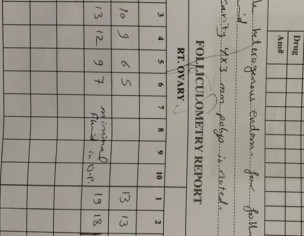 Drug
Am#
heterogenous endom. for foll
cavity 4X3 mm polyp is noted.
FOLLICULOMETRY REPORT
RT. OVARY
3 4 5 6 7 8 9 10 1 2
10 9 6 5 13 13
13 12 9 7 minimal fluid in 19 18